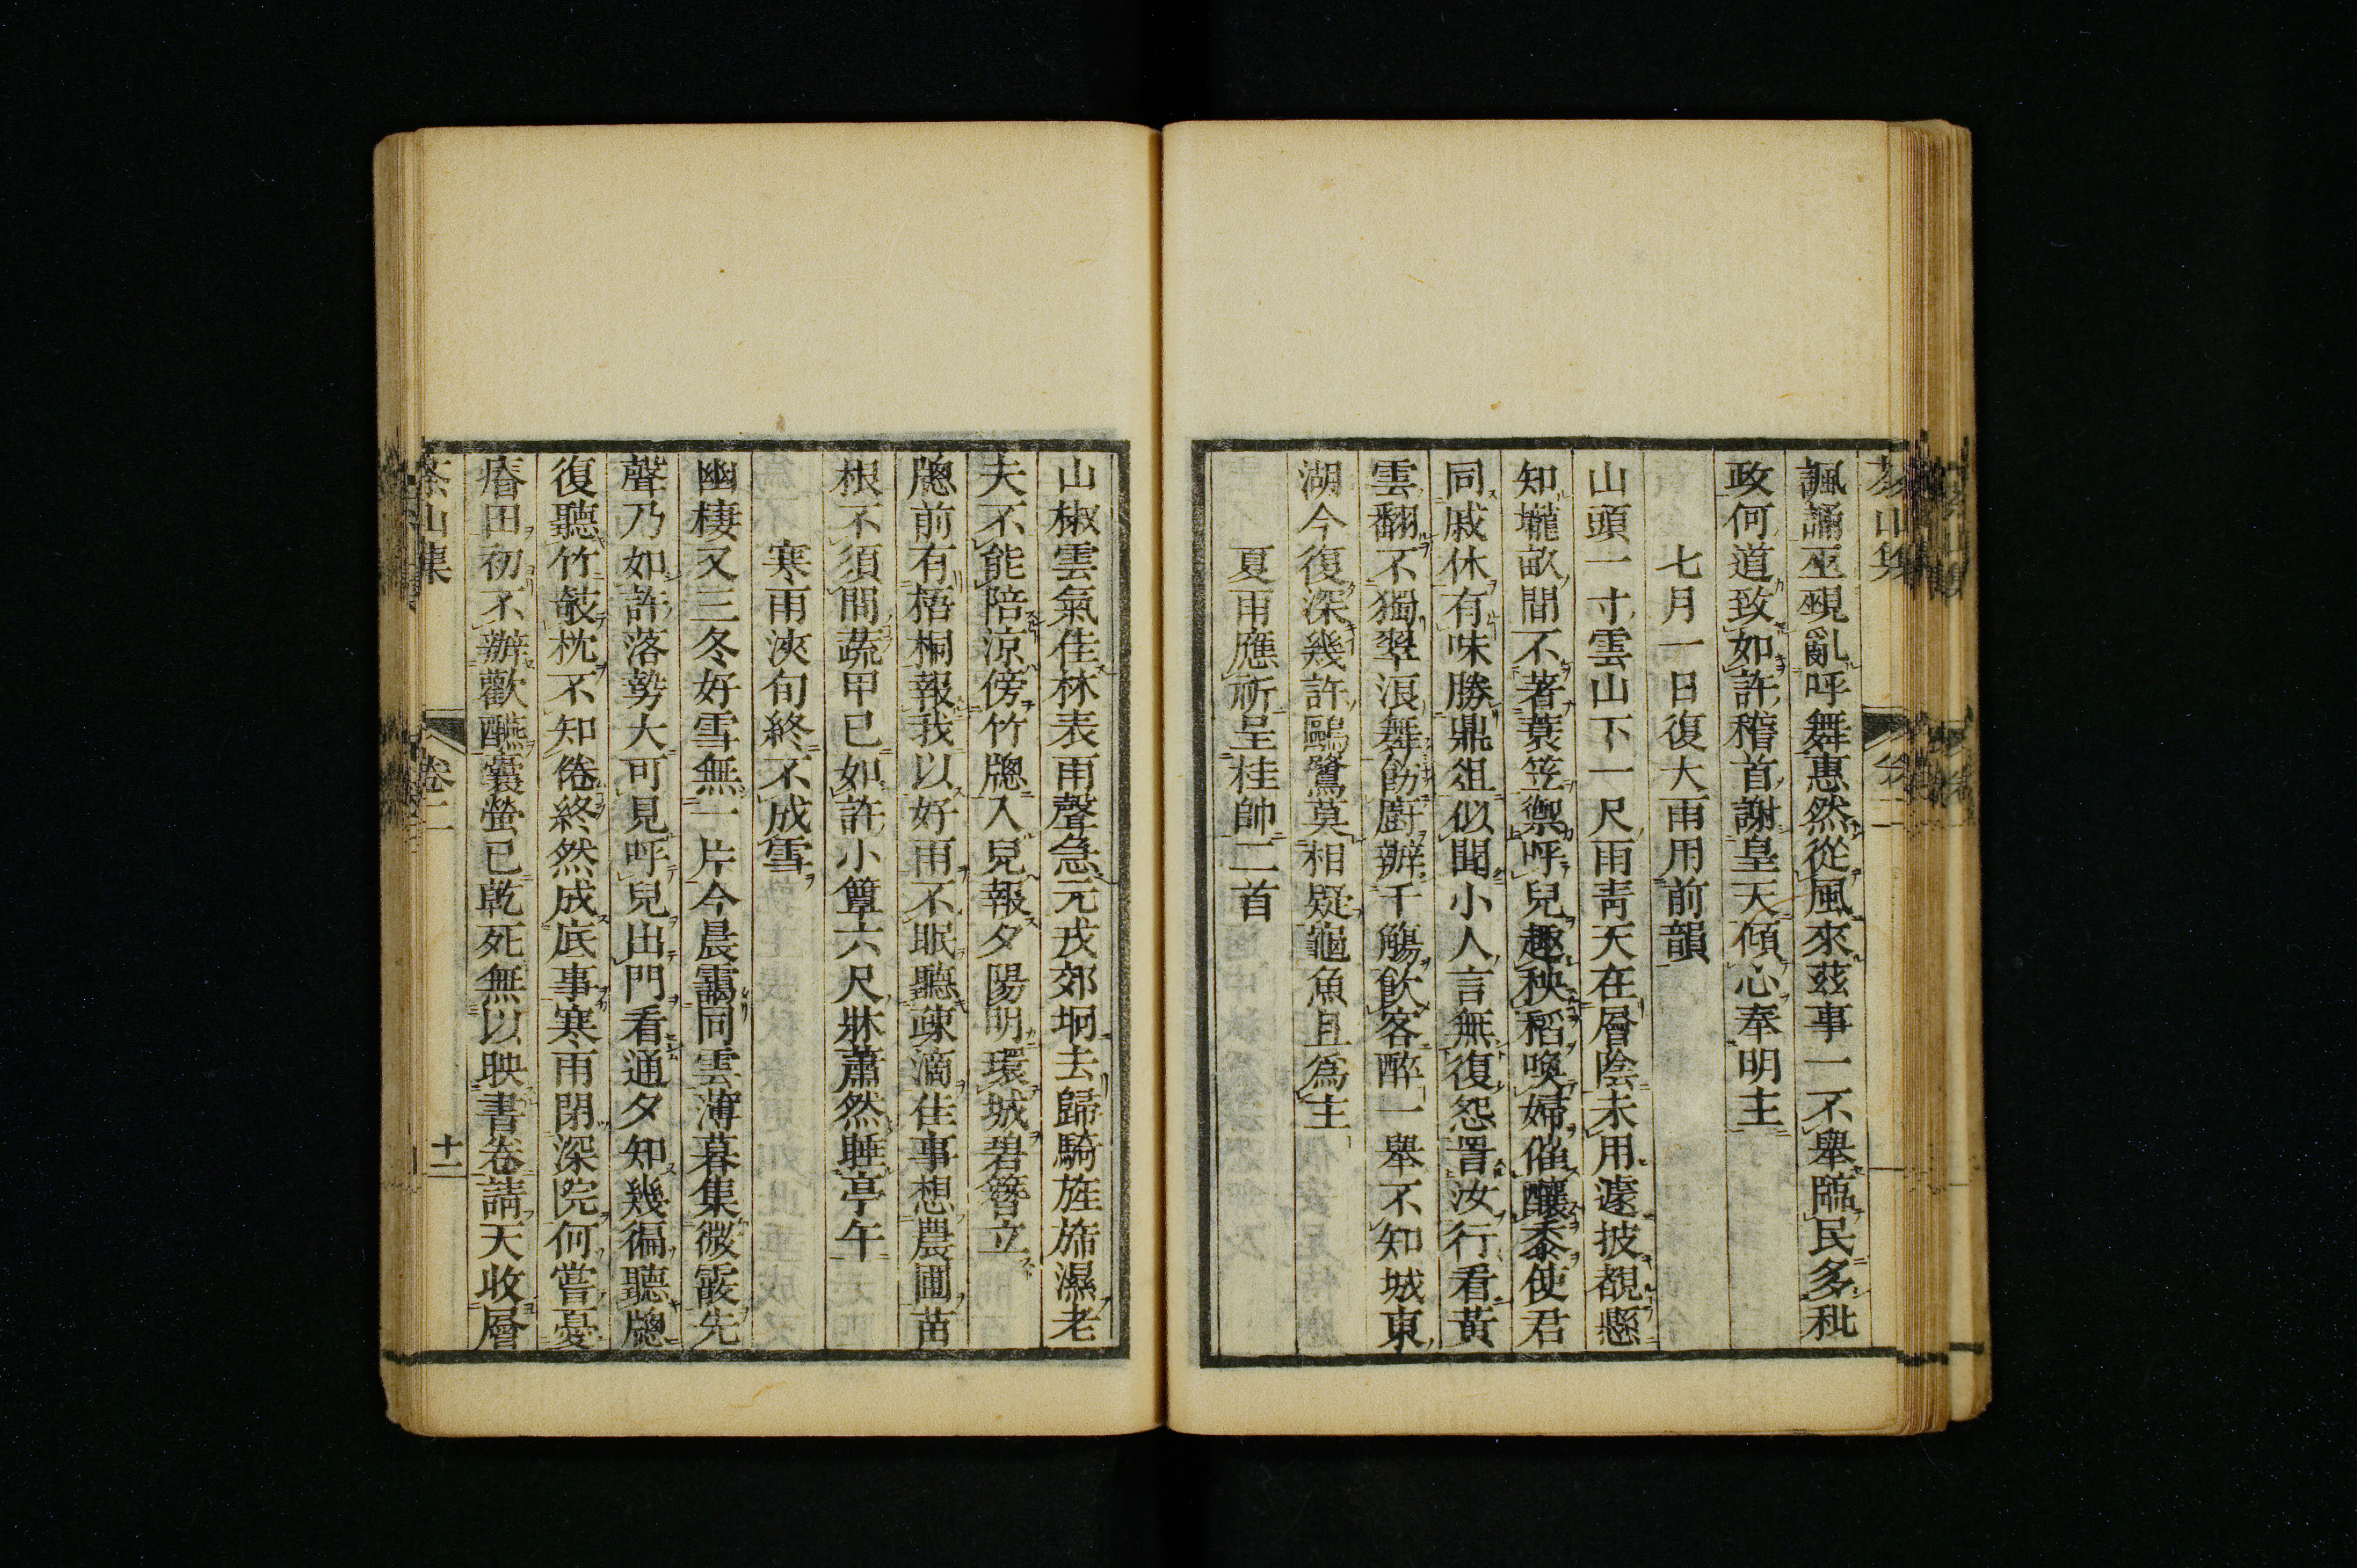 茶山集
諷誦巫覡亂呼舞惠然從風來茲事一不舉臨民多秕
政何道致如許稽首謝皇天傾心奉明主
七月一日復大雨用前韻
山頭一寸雲山下一尺雨青天在層陰未用遽披覩懸
知壠畝間不著蓑笠禦呼兒趣秧稻喚婦催釀黍使君
同戚休有味勝鼎俎似聞小人言無復怨詈汝行看黃
雲翻不獨翠浪舞飭廚辦千觴飲客醉一舉不知城東
湖今復深幾許鷗鷺莫相疑龜魚且爲主
夏雨應祈呈桂帥二首
山椒雲氣佳林表雨聲急元戎郊坰去歸騎旌斾濕老
夫不能陪涼傍竹牕入兒報夕陽明環城碧簪立
牕前有梧桐報我以好雨不眠聽疎滴佳事想農圃苗
根不須問蔬甲已如許小簟六尺牀蕭然睡亭午
寒雨浹旬終不成雪
幽棲又三冬好雪無一片今晨靄同雲薄暮集微霰先
聲乃如許落勢大可見呼兒出門看通夕知幾徧聽牕
復聽竹敧枕不知倦終然成底事寒雨閉深院何嘗憂
瘠田初不辦歡醼囊螢已乾死無以映書卷請天收層
茶山集
卷二
十二